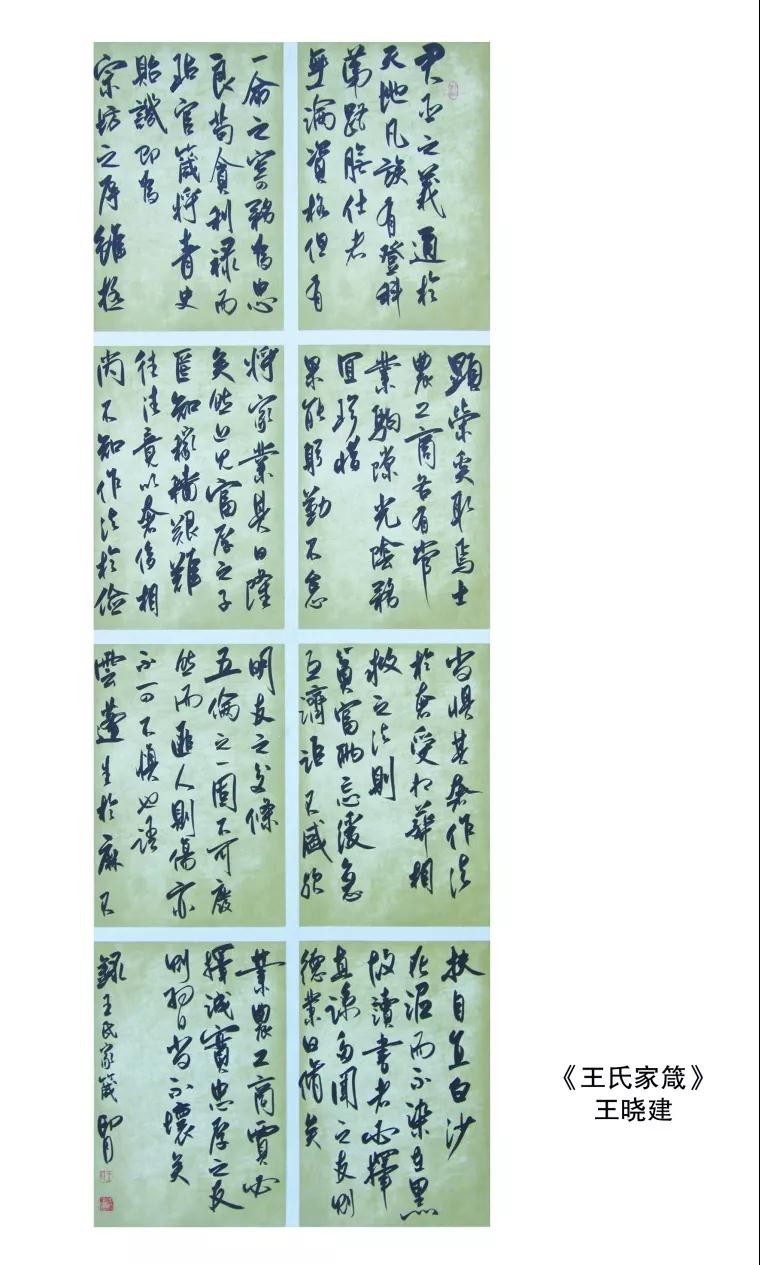 君臣之義通於
天地凡族有登科
第跻膴仕者
無論資格但有
一命之寄務為忠
良苟貪利祿而
玷官箴將青史
貽譏即為
宗坊之辱雖極
顯榮奚取焉士
農工商各有常
業駒隙光陰務
宜珍惜
果能躬勤不怠
將家業其日隆
矣然迩見富厚之子
匪知稼穡艱難
往往竟以奢侈相
尚不知作法於儉
尚懼其奢作法
於奢受 相
救之法則
貧富酌忘緩急
互濟詎不盛歟
朋友之交條
五倫之一固不可廢
然而匪人則傷亦
不可不慎也語
雲蓬生於麻不
扶自直白沙
在泥而不染自黑
故讀書者必擇
直諒多聞之友則
德業日脩矣
業農工商賈必
擇誠實忠厚之友
則習日尚不壞矣
錄王氏家箴
《王氏家箴》
王晓建